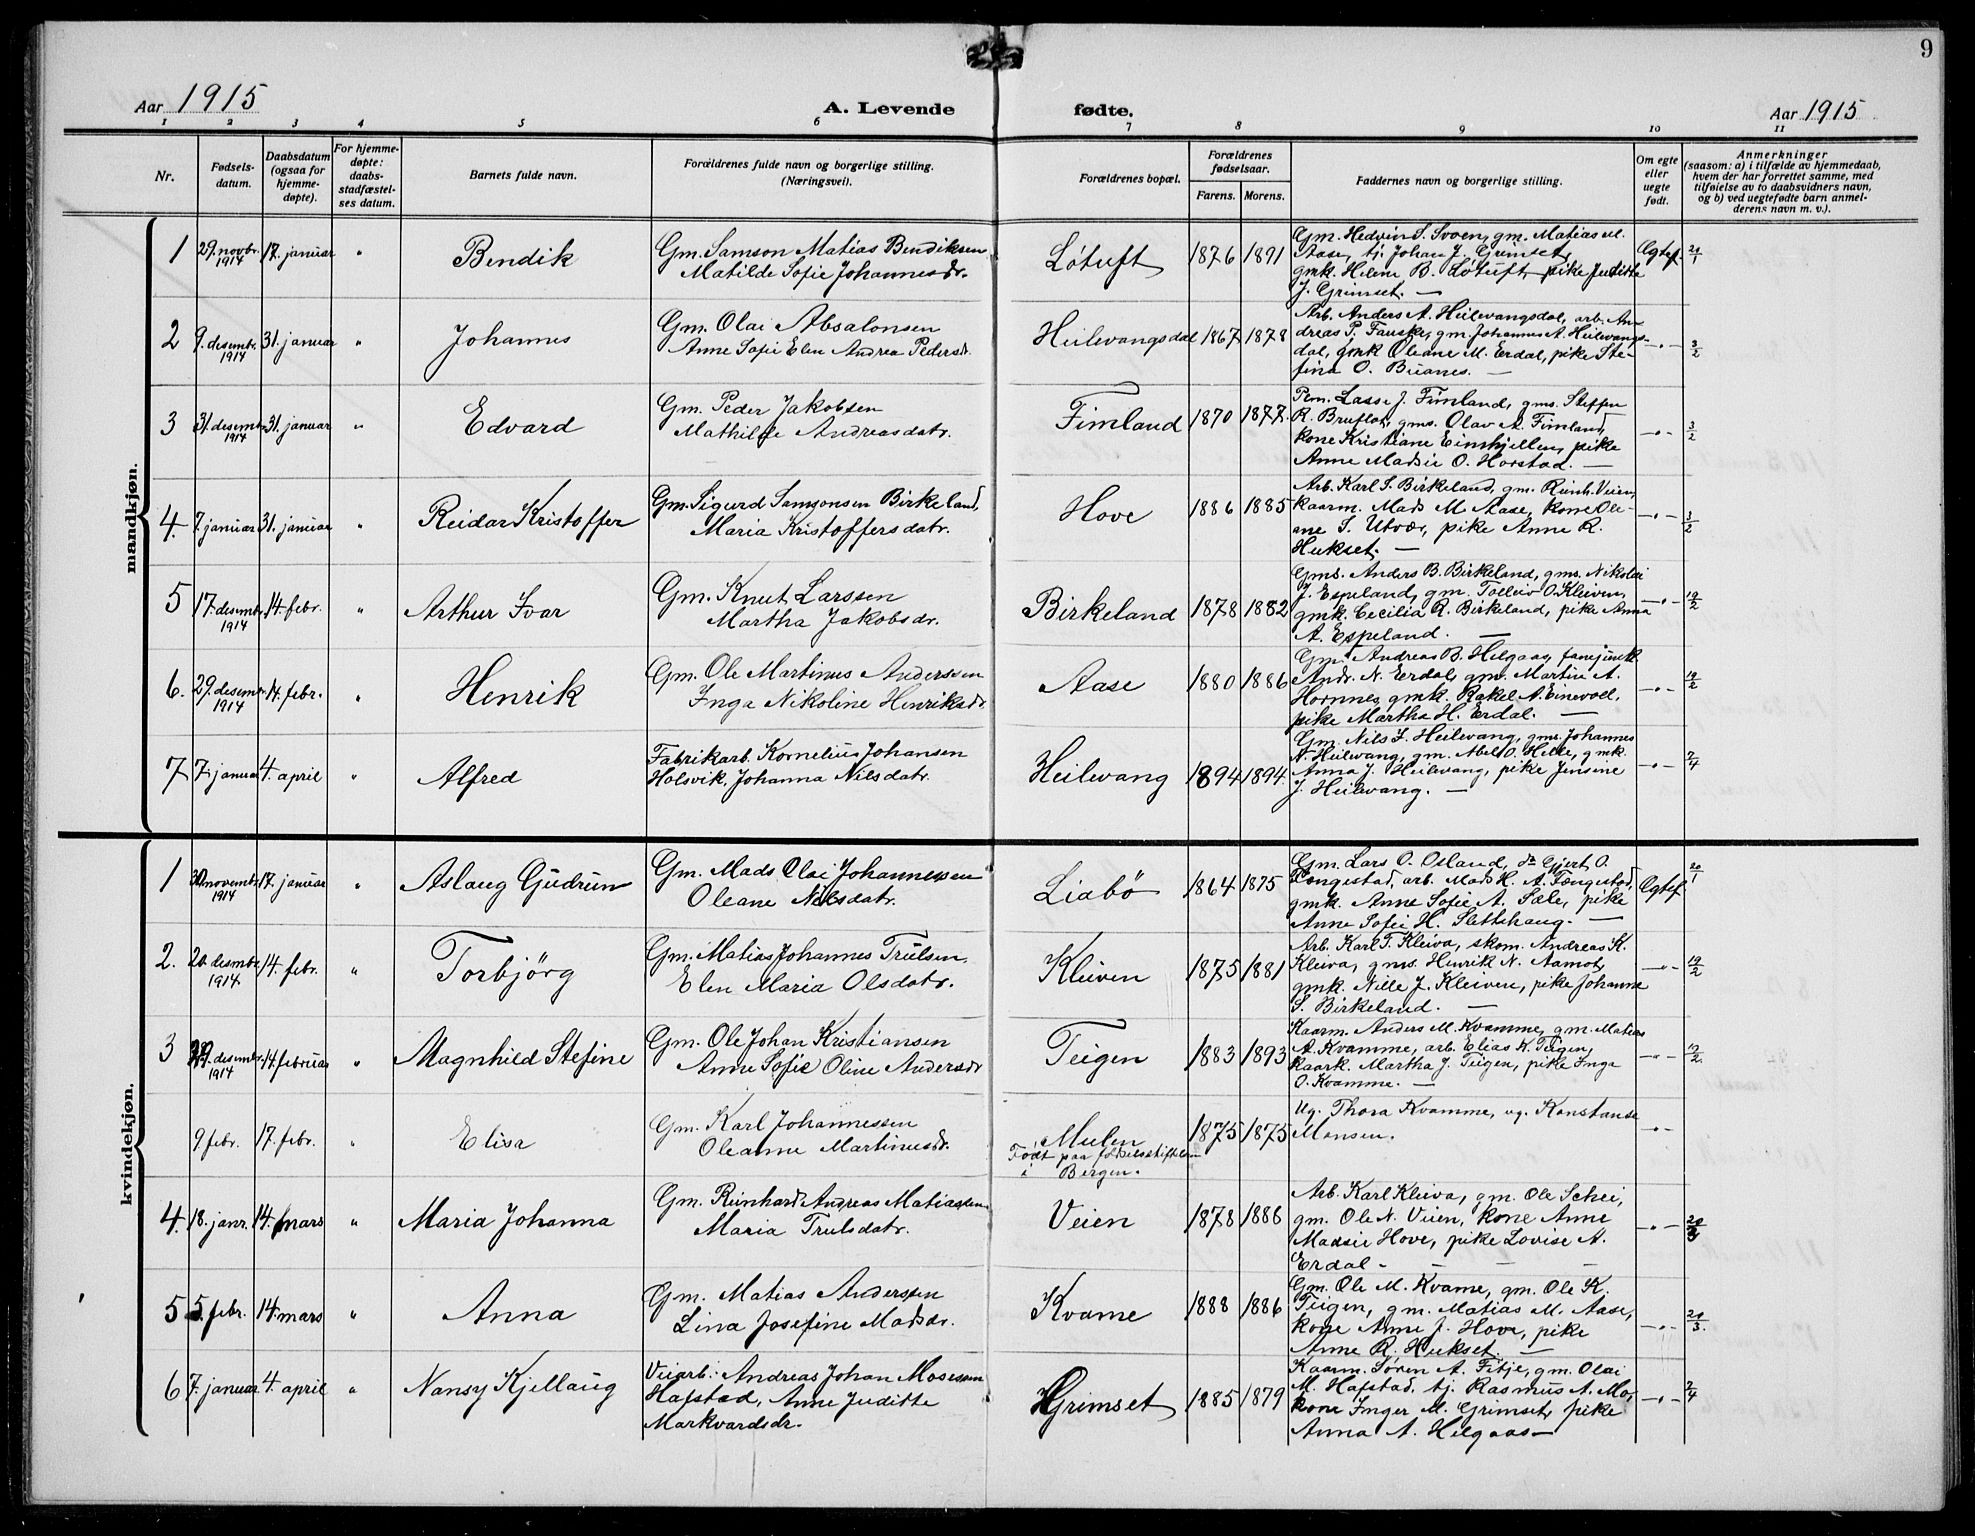 9
Aar 1915 A. Levende fødte. Aar 1915
1 2 3 4 5 6 7 8 9 10 11
Nr.
Fødsels-
datum.
Daabsdatum
(ogsaa for
hjemme-
døpte).
For hjemme-
døpte:
daabs-
stadfæstel-
ses datum.
Barnets fulde navn.
Forældrenes fulde navn og borgerlige stilling.
(Næringsvei).
Forældrenes bopæl.
Forældrenes
fødselsaar.
Farens. Morens.
Faddernes navn og borgerlige stilling.
Om egte
eller
uegte
født.
Anmerkninger
(saasom: a) i tilfælde av hjemmedaab,
hvem der har forrettet samme, med
tilføielse av to daabsvidners navn,
og b) ved uegtefødte barn anmel-
derens navn m. v.).
mandkjøn.
1 29. novbr. 1914 17. januar " Bendik
Gm. Samson Matias Bendiksen
Matilde Sofie Johannesdr.
Løtuft 1876 1891
Gm. Hedvin S. Svoen, gm. Matias M.
Aase, tj. Johan J. Grimset,
gmk. Helene B. Løtuft, pike Juditte
J. Grimset. —
Egtef. 21/1
2 9. desembr. 1914 31. januar " Johannes
Gm. Olai Absalonsen
Anne Sofie Elen Andrea Pedersdr.
Heilevangsdal 1867 1878
Arb. Anders A. Heilevangsdal, arb. An-
dreas P. Fauske, gm. Johannes A. Heilevangs-
dal, gmk Oleane M. Erdal, pike Ste-
fina O. Buanes. —
—"— 3/2
3 31. desembr. 1914 31. januar " Edvard
Gm. Peder Jakobsen
Mathilde Andreasdatr.
Fimland 1870 1877.
Pem. Lasse J. Fimland, gms. Steffen
R. Bruflot, gms. Olav A. Fimland,
kone Kristiane Einshjellen, pike
Anne Madsie O. Horstad. —
—"— 3/2
4. 7. januar 31. januar " Reidar Kristoffer
Gm. Sigurd Samsonsen Birkeland,
Maria Kristoffersdatr.
Hove 1886 1885
Arb. Karl S. Birkeland, gm. Reinh. Veien,
kaarm. Mads M. Aase, kone Ole-
ane S. Utvær, pike Anne R.
Hukset. —
—"— 3/2
5 17. desembr. 1914 14. febr. " Arthur Ivar
Gm. Knut Larssen
Martha Jakobsdr.
Birkeland 1878 1882
Gms. Anders B. Birkeland, gms. Nikolai
J. Espeland, gm. Tolleiv O. Kleiven,
gmk. Cecilia R. Birkeland, pike Anna
A. Espeland. —
—"— 19/2
6. 29. desembr. 1914 14. febr. " Henrik
Gm. Ole Martinus Anderssen
Inga Nikoline Henriksdr.
Aase 1880 1886
Gm. Andreas B. Helgaas, fanejunk.
Andr. N. Erdal, gm. Martin A.
Hornnes, gmk. Rakel A. Einevoll,
pike Martha H. Erdal. —
—"— 19/2
7 7. januar 4. april " Alfred
Fabrikarb. Kornelius Johansen
Holsvik, Johanna Nilsdatr.
Heilevang 1894 1894.
Gm. Nils J. Heilevang, gms. Johannes
N. Heilevang, gm. Abel O. Helle, gmk.
Anna J. Heilevang, pike Jensine
J. Heilevang. —
—"— 7/4
kvindekjøn.
1 30. novembr. 1914 17. januar " Aslaug Gudrun
Gm. Mads Olai Johannessen
Oleane Nilsdatr.
Liabö 1864 1875
Gm. Lars O. Osland, do Gjert O.
Fængestad, arb. Mads K. A. Fængestad,
gmk. Anne Sofie A. Sæle, pike
Anne Sofie H. Slettehaug. —
Egtef. 20/1
2. 20. desembr. 1914 14. febr. " Torbjörg
Gm. Matias Johannes Trulsen,
Elen Maria Olsdatr.
Kleiven 1875 1881
Arb. Karl T. Kleiva, skom. Andreas K.
Kleiva, gms. Henrik N. Aamot,
gmk. Nille J. Kleiven, pike Johanne
S. Birkeland. —
—"— 19/2
3 29. desembr. 1914 14. februar " Magnhild Stefine
Gm. Ole Johan Kristiansen
Anne Sofie Oline Andersdr
Teigen 1883 1893
Kaarm. Anders M. Kvamme, gm. Matias
A. Kvamme, arb. Elias K. Teigen,
kaark. Martha J. Teigen, pike Inga
O. Kvamme. —
—"— 19/2.
9 febr. 17. febr. " Elisa
Gm. Karl Johannessen
Oleanne Martinusdr.
Mulen
Født paa fødselsstiftelsen
i Bergen.
1875 1875
Ug. Thora Kvamme, ug. Konstanse
Monsen.
—"—
4. 18. janr. 14. mars " Maria Johanna
Gm. Reinhard Andreas Matiassen
Maria Trulsdatr.
Veien 1878 1886
Arb. Karl Kleiva, gm. Ole Schei,
gm. Ole N. Veien, kone Anne
Madsie Hove, pike Lovise A.
Erdal — — —
—"— 20/3
5 5. febr. 14. mars " Anna
Gm. Matias Anderssen
Lina Josefine Madsdr.
Kvame 1888 1886
Gm. Ole M. Kvame, gm. Ole K.
Teigen, gm. Matias M. Aase,
kone Anne J. Hove, pike
Anne R. Hukset. —
—"— 20/3.
6 7. januar 4. april " Nansy Kjellaug
Veiarb. Andreas Johan Mosessen
Hafstad, Anne Juditte
Markvardsdr.
Grimset 1885 1879
Kaarm. Søren A. Fitje, gm. Olai
M. Hafstad, tj. Rasmus A. Mo,
kone Inger M. Grimset, pike
Anna A. Helgaas —
—"— 7/4